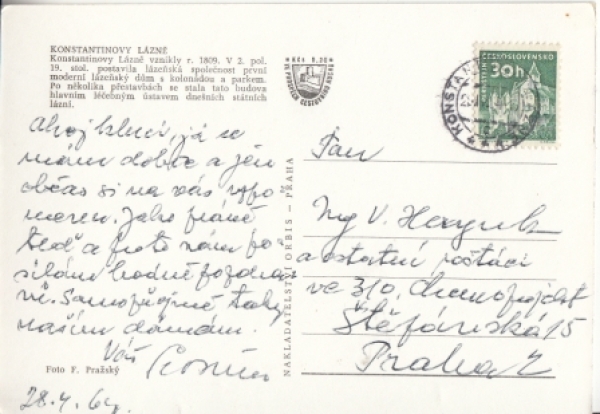 KONSTANTINOVY LÁZNĚ
Konstantinovy Lázně vznikly r. 1809. V 2. pol.
19. stol. postavila lázeňská společnost první
moderní lázeňský dům s kolonádou a parkem.
Po několika přestavbách se stala tato budova
hlavním léčebným ústavem dnešních státních
lázní.
Kčs 0,30
ČESKOSLOVENSKO
30h
KONSTAN
Ahoj kluci, já se
mám dobře a jen
občas si na vás vzpo
menu. Jako právě
teď a proto vám po
sílám hodně pozdra
vů. Samozřejmě taky
našim dámám.
Váš
28. 4. 64.
Foto F. Pražský
NAKLADATELSTVÍ ORBIS – PRAHA
Pan
Ing V.
a ostatní
ve 310,
Štefánikova 15
Praha